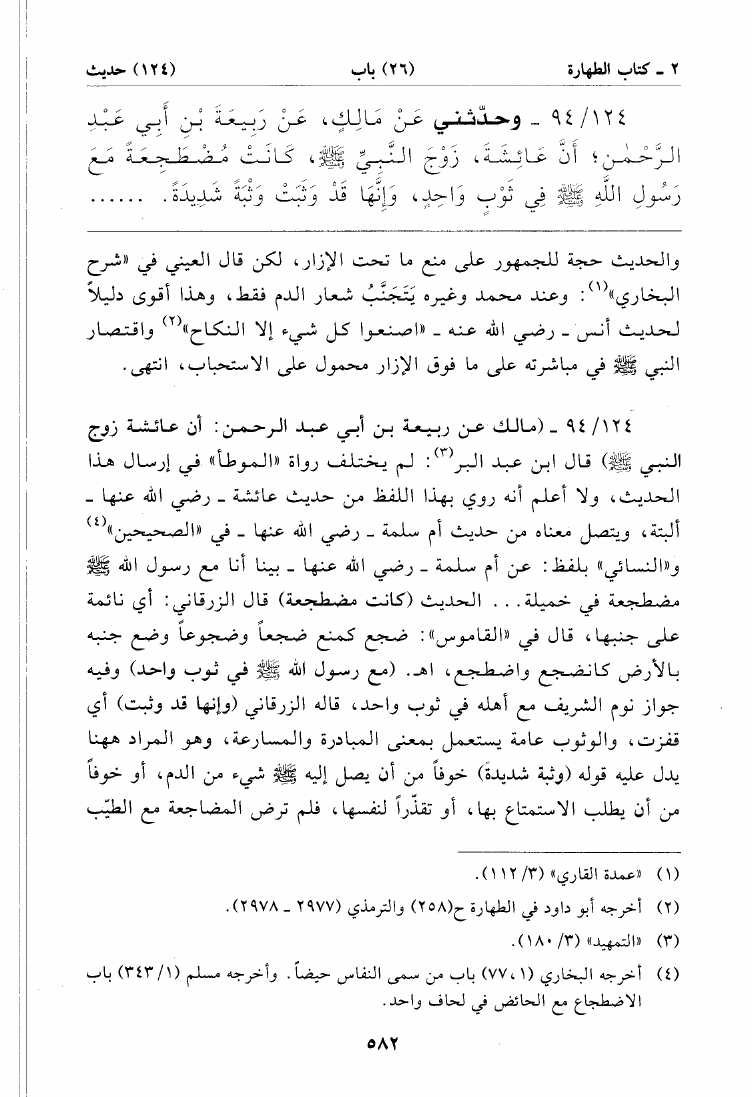 ٢ ـ كتاب الطهارة (٢٦) باب (١٢٤) حديث
٩٤/١٢٤ ـ وحدّثني عَنْ مَالِكٍ، عَنْ رَبِيعَةَ بْنِ أَبِي عَبْدِ
الرَّحْمٰنِ؛ أَنَّ عَائِشَةَ، زَوْجَ النَّبِيِّ ﷺ، كَانَتْ مُضْطَجِعَةً مَعَ
رَسُولِ اللَّهِ ﷺ فِي ثَوْبٍ وَاحِدٍ، وَإِنَّهَا قَدْ وَثَبَتْ وَثْبَةً شَدِيدَةً. ......
والحديث حجة للجمهور على منع ما تحت الإزار، لكن قال العيني في «شرح
البخاري»(١): وعند محمد وغيره يَتَجَنَّبُ شعار الدم فقط، وهذا أقوى دليلاً
لحديث أنس ـ رضي الله عنه ـ «اصنعوا كل شيء إلا النكاح»(٢) واقتصار
النبي ﷺ في مباشرته على ما فوق الإزار محمول على الاستحباب، انتهى.
٩٤/١٢٤ ـ (مالك عن ربيعة بن أبي عبد الرحمن: أن عائشة زوج
النبي ﷺ) قال ابن عبد البر(٣): لم يختلف رواة «الموطأ» في إرسال هذا
الحديث، ولا أعلم أنه روي بهذا اللفظ من حديث عائشة ـ رضي الله عنها ـ
ألبتة، ويتصل معناه من حديث أم سلمة ـ رضي الله عنها ـ في «الصحيحين»(٤)
و«النسائي» بلفظ: عن أم سلمة ـ رضي الله عنها ـ بينا أنا مع رسول الله ﷺ
مضطجعة في خميلة... الحديث (كانت مضطجعة) قال الزرقاني: أي نائمة
على جنبها، قال في «القاموس»: ضجع كمنع ضجعاً وضجوعاً وضع جنبه
بالأرض كانضجع واضطجع، اهـ. (مع رسول الله ﷺ في ثوب واحد) وفيه
جواز نوم الشريف مع أهله في ثوب واحد، قاله الزرقاني (وإنها قد وثبت) أي
قفزت، والوثوب عامة يستعمل بمعنى المبادرة والمسارعة، وهو المراد ههنا
يدل عليه قوله (وثبة شديدة) خوفاً من أن يصل إليه ﷺ شيء من الدم، أو خوفاً
من أن يطلب الاستمتاع بها، أو تقذّراً لنفسها، فلم ترض المضاجعة مع الطيّب
(١) «عمدة القاري» (١١٢/٣).
(٢) أخرجه أبو داود في الطهارة ح(٢٥٨) والترمذي (٢٩٧٧ ـ ٢٩٧٨).
(٣) «التمهيد» (١٨٠/٣).
(٤) أخرجه البخاري (٧٧،١) باب من سمى النفاس حيضاً. وأخرجه مسلم (٣٤٣/١) باب
الاضطجاع مع الحائض في لحاف واحد.
٥٨٢